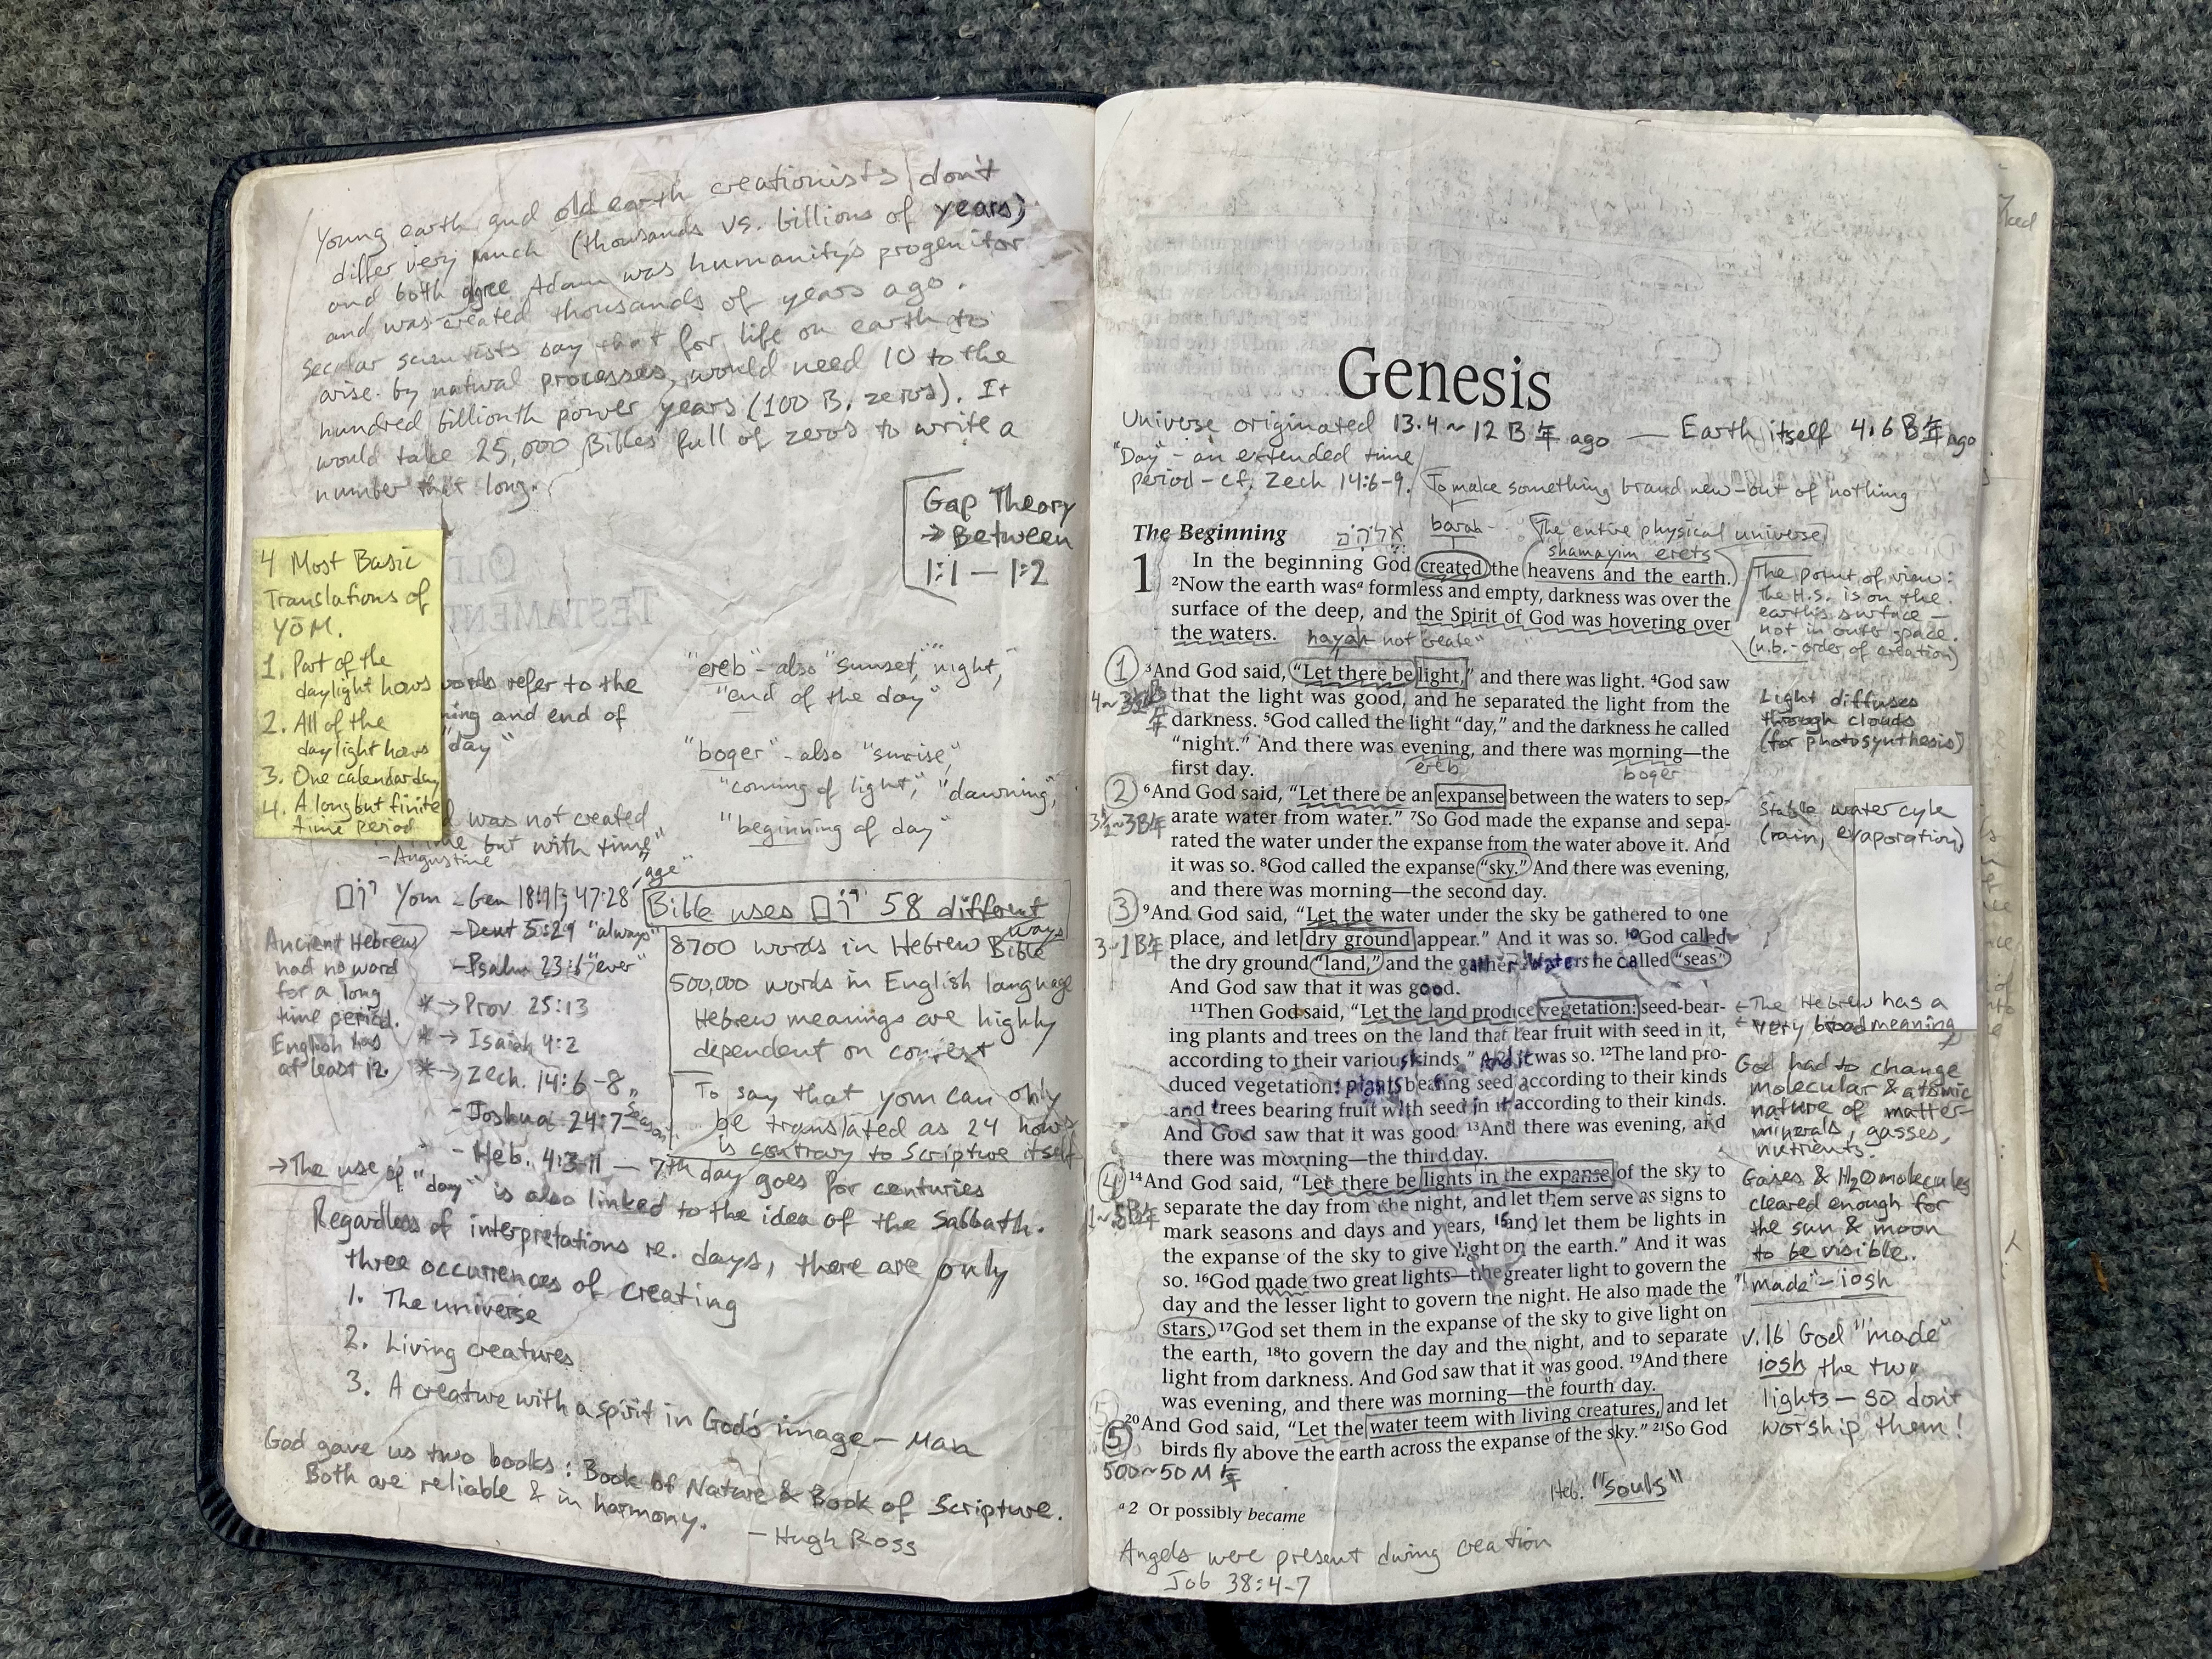 Young earth and old earth creationists don't
differ very much (thousands vs. billions of years)
and both agree Adam was humanity's progenitor
and was created thousands of years ago.
Secular scientists say that for life on earth to
arise by natural processes, would need 10 to the
hundred billionth power years (100 B. zeros). It
would take 25,000 Bibles full of zeros to write a
number that long.
Gap Theory
→ Between
1:1 — 1:2
4 Most Basic
Translations of
YŌM.
1. Part of the
daylight hours
2. All of the
daylight hours
3. One calendar day
4. A long but finite
time period
words refer to the
and end of
"day"
was not created
but with time"
- Augustine
"ereb" - also "sunset," "night,"
"end of the day"
"boger" - also "sunrise,"
"coming of light," "dawning,"
"beginning of day"
Yom - Gen 18:11; 47:28 "age"
- Deut 5:29 "always"
- Psalm 23:6 "ever"
*→ Prov 25:13
*→ Isaiah 4:2
*→ Zech. 14:6-8
- Joshua 24:7
- Heb. 4:3-11 — 7th day goes for centuries
Ancient Hebrews
had no word
for a long
time period.
English has
at least 12.
Bible uses 58 different
ways
8700 words in Hebrew Bible
500,000 words in English language
Hebrew meanings are highly
dependent on context
To say that yom can only
be translated as 24 hours
is contrary to Scripture itself
→ The use of "day" is also linked to the idea of the Sabbath.
Regardless of interpretations re. days, there are only
three occurrences of creating
1. The universe
2. Living creatures
3. A creature with a spirit in God's image — Man
God gave us two books: Book of Nature & Book of Scripture.
Both are reliable & in harmony.
— Hugh Ross
Genesis
Universe originated 13.4~12 B年 ago — Earth itself 4.6 B年 ago
"Day" - an extended time
period - cf. Zech 14:6-9.
To make something brand new - out of nothing
barah
The entire physical universe
shamayim erets
The Beginning
1 In the beginning God created the heavens and the earth.
²Now the earth wasª formless and empty, darkness was over the
surface of the deep, and the Spirit of God was hovering over
the waters.
hayah not "create"
The point of view:
The H.S. is on the
earth's surface —
not in outer space.
(n.b. - order of creation)
① ³And God said, "Let there be light," and there was light. ⁴God saw
that the light was good, and he separated the light from the
darkness. ⁵God called the light "day," and the darkness he called
"night." And there was evening, and there was morning—the
first day.
ereb
boger
Light diffuses
through clouds
(for photosynthesis)
② ⁶And God said, "Let there be an expanse between the waters to sep-
arate water from water." ⁷So God made the expanse and sepa-
rated the water under the expanse from the water above it. And
it was so. ⁸God called the expanse "sky." And there was evening,
and there was morning—the second day.
3½~3B年
Stable water cyle
(rain, evaporation)
③ ⁹And God said, "Let the water under the sky be gathered to one
place, and let dry ground appear." And it was so. ¹⁰God called
the dry ground "land," and the gathered waters he called "seas"
And God saw that it was good.
3~1B年
¹¹Then God said, "Let the land produce vegetation: seed-bear-
ing plants and trees on the land that bear fruit with seed in it,
according to their various kinds." And it was so. ¹²The land pro-
duced vegetation: plants bearing seed according to their kinds
and trees bearing fruit with seed in it according to their kinds.
And God saw that it was good. ¹³And there was evening, and
there was morning—the third day.
← The Hebrew has a
very broad meaning
God had to change
molecular & atomic
nature of matter-
minerals, gasses,
nutrients.
④ ¹⁴And God said, "Let there be lights in the expanse of the sky to
separate the day from the night, and let them serve as signs to
mark seasons and days and years, ¹⁵and let them be lights in
the expanse of the sky to give light on the earth." And it was
so. ¹⁶God made two great lights—the greater light to govern the
day and the lesser light to govern the night. He also made the
stars. ¹⁷God set them in the expanse of the sky to give light on
the earth, ¹⁸to govern the day and the night, and to separate
light from darkness. And God saw that it was good. ¹⁹And there
was evening, and there was morning—the fourth day.
Gases & H2O molecules
cleared enough for
the sun & moon
to be visible.
"made" - iosh
v.16 God "made"
iosh the two
lights — so don't
worship them!
⑤ ²⁰And God said, "Let the water teem with living creatures, and let
birds fly above the earth across the expanse of the sky." ²¹So God
500~50 M年
Heb. "souls"
ª 2 Or possibly became
Angels were present during creation
Job 38:4-7